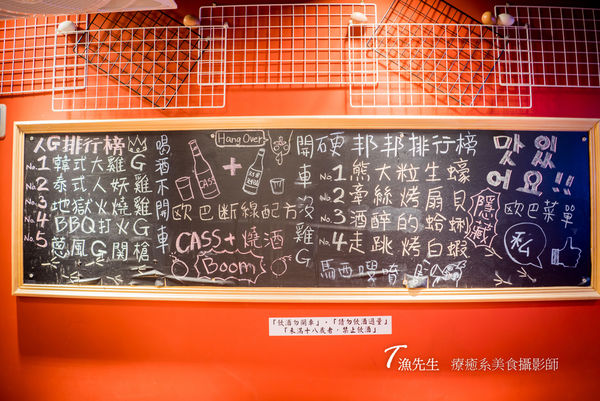 人G排行榜
No.1 韓式大雞G
No.2 泰式人妖雞
No.3 地獄火燒雞
No.4 BBQ打火G
No.5 蔥風G関槍
喝酒不開車
開車沒雞G
Hang Over
+
CASS
歐巴断線配方
CASS+燒酒
Boom
硬邦邦排行榜
No.1 熊大粒生蠔
No.2 牽絲烤扇貝
No.3 酒醉的蛤蜊
No.4 走跳烤白蝦
馬西嗖唷
隱藏
맛있어요!!
歐巴菜單
私
「飲酒勿開車」、「請勿飲酒過量」
「未滿十八歲者，禁止飲酒」
T漁先生 療癒系美食攝影師